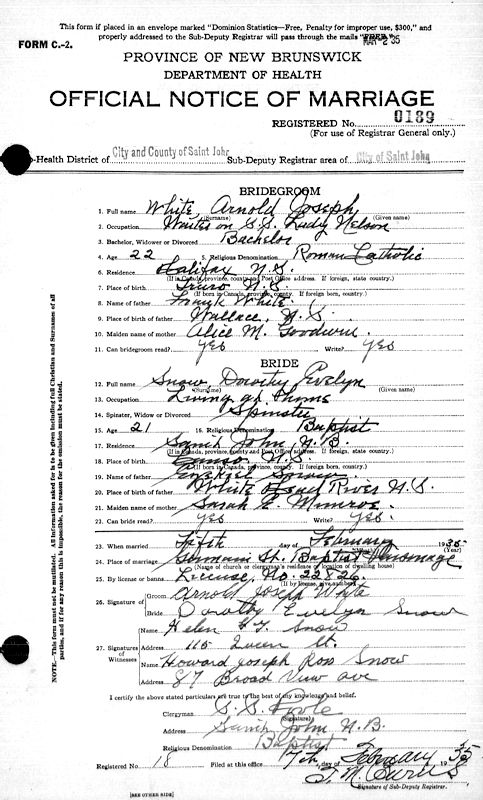 This form if placed in an envelope marked "Dominion Statistics—Free, Penalty for improper use, $300," and
properly addressed to the Sub-Deputy Registrar will pass through the mails "FREE"
FORM C.-2.
PROVINCE OF NEW BRUNSWICK
DEPARTMENT OF HEALTH
OFFICIAL NOTICE OF MARRIAGE
REGISTERED No. 0189
(For use of Registrar General only.)
-Health District of City and County of Saint John Sub-Deputy Registrar area of City of Saint John
BRIDEGROOM
1. Full name White Arnold Joseph
(Surname) (Given name)
2. Occupation Waiter on S.S. Lady Nelson
3. Bachelor, Widower or Divorced Bachelor
4. Age 22 5. Religious Denomination Roman Catholic
6. Residence Halifax N.S.
(If in Canada, province, county and Post Office address. If foreign, state country)
7. Place of birth Truro N.S.
(If born in Canada, province, county. If foreign born, country.)
8. Name of father Frank White
9. Place of birth of father Wallace, N.S.
10. Maiden name of mother Alice M. Goodwin
11. Can bridegroom read? Yes Write? Yes
BRIDE
12. Full name Snow Dorothy Evelyn
(Surname) (Given name)
13. Occupation Living at Home
14. Spinster, Widow or Divorced Spinster
15. Age 21 16. Religious Denomination Baptist
17. Residence Saint John N.B.
(If in Canada, province, county and Post Office address. If foreign, state country)
18. Place of birth Canso N.S.
(If born in Canada, province, county. If foreign born, country.)
19. Name of father Snow
20. Place of birth of father White Head River N.S.
21. Maiden name of mother Sarah E. Munroe
22. Can bride read? Yes Write? Yes.
23. When married Fifth day of February 1935
(Year)
24. Place of marriage Germain St. Baptist Parsonage
(Name of church or clergyman's residence or location of dwelling house)
25. By license or banns License, No. 22826.
(If by license, give number)
26. Signature of Groom Arnold Joseph White
Bride Dorothy Evelyn Snow
27. Signatures of Witnesses
Name Helen Snow
Address 115 Queen St.
Name Howard Joseph Ross Snow
Address 87 Broad View ave
I certify the above stated particulars are true to the best of my knowledge and belief.
Clergyman S. S. Poole
(Signature)
Address Saint John N.B.
Religious Denomination Baptist
Registered No. 18 Filed at this office 7th day of February 1935
Signature of Sub-Deputy Registrar.
[SEE OTHER SIDE]
NOTE.—This form must not be mutilated. All information asked for is to be given including full Christian and Surnames of all
parties, and if for any reason this is impossible, the reason for the omission must be stated.